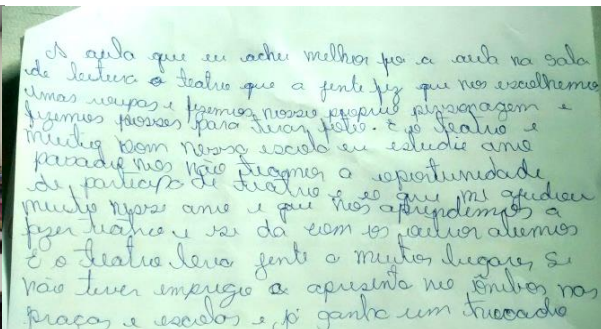 A aula que eu achei melhor foi a aula na sala
de leitura o teatro que a gente fez que nos escolhemos
umas roupas e fizemos nosso proprio personagem e
fizemos posses para tirar foto. E o teatro e
muito bom nessa escola eu estudie ano
passado nos não tivemos a oportunidade
de participa de teatro e o que me ajudou
muito nesse ano e que nos aprendemos a
fazer teatro e se da com os outros alunos
E o teatro leva gente a muitos lugares, se
não tiver emprego a apresenta no ônibus nas
praças e escolas e, já ganha um trocado